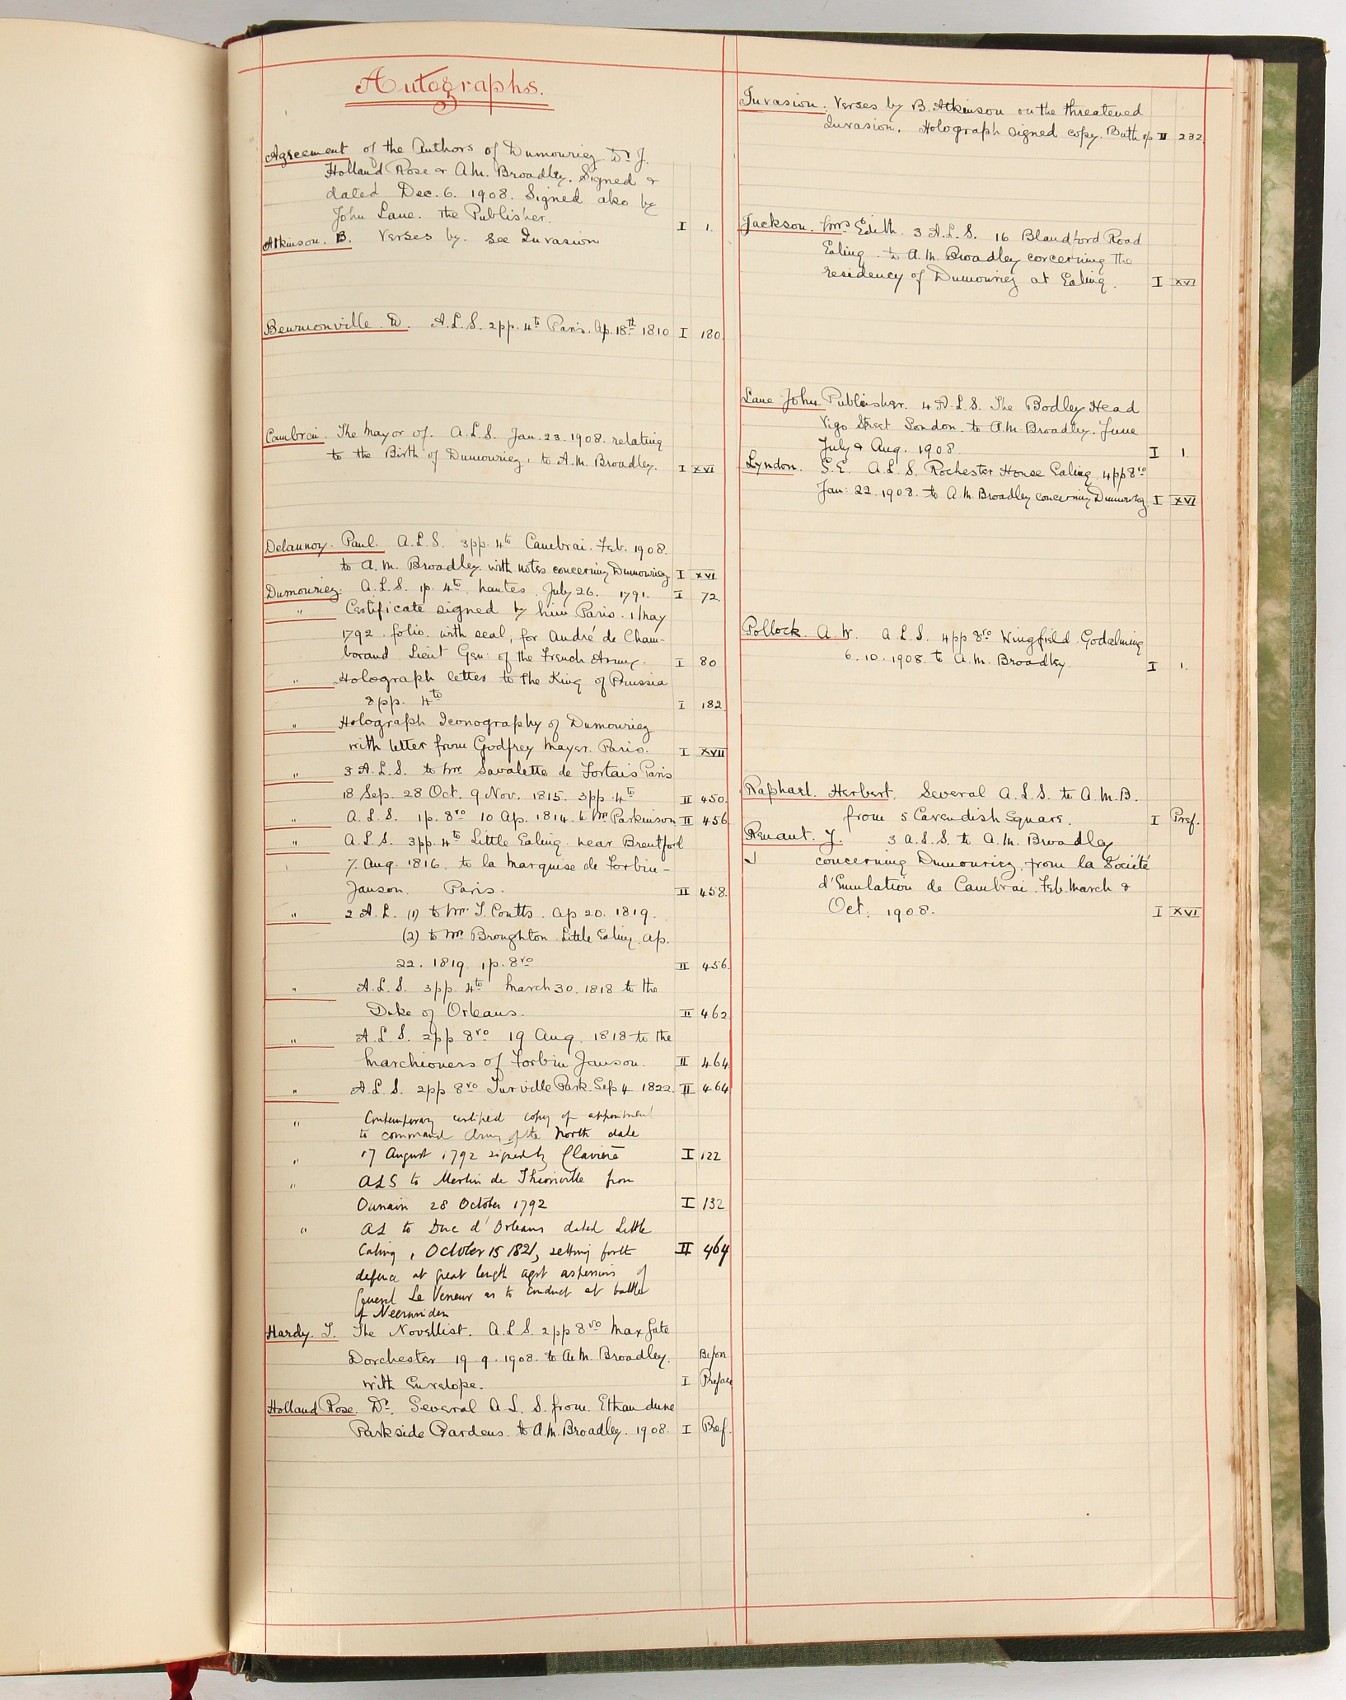 Autographs.
Agreement of the Authors of Dumouriez Dr. J.
Holland Rose & A.M. Broadley. Signed &
dated Dec. 6. 1908. Signed also by
John Lane. the Publisher. I 1.
Atkinson. B. Verses by. See Invasion
Beurnonville. A.L.S. 2pp. 4to Paris. Ap. 18th 1810 I 180.
Cambrai. The Mayor of. A.L.S. Jan. 23. 1908. relating
to the Birth of Dumouriez. to A.M. Broadley. I XVI
Delaunoy. Paul. A.L.S. 3pp. 4to Cambrai. Feb. 1908.
to A.M. Broadley. with notes concerning Dumouriez I XVI
Dumouriez. A.L.S. 1p. 4to. Nantes. July 26. 1791. I 72
" Certificate signed by him Paris. 1 May
1792. folio. with seal, for André de Cham-
borand Lieut Gen. of the French Army. I 80
" Holograph letter to the King of Prussia
8pp. 4to I 182.
" Holograph Iconography of Dumouriez
with letter from Godfrey Mayer. Paris. I XVII
" 3 A.L.S. to Mr. Savalette de Fortais Paris
18 Sep. 28 Oct. 9 Nov. 1815. 3pp. 4to II 450.
" A.L.S. 1p. 8vo 10 Ap. 1814. to Mr Parkinson II 456
" A.L.S. 3pp. 4to Little Ealing near Brentford
7. Aug. 1816. to la Marquise de Forbin-
Janson. Paris. II 458.
" 2 A.L. (1) to Mr. T. Coutts. Ap 20. 1819.
(2) to Mr. Broughton. Little Ealing. Ap.
22. 1819. 1p. 8vo II 456.
" A.L.S. 3pp. 4to March 30. 1818 to the
Duke of Orleans. II 462
" A.L.S. 2pp 8vo 19 Aug. 1818 to the
Marchioness of Forbin Janson. II 464
" A.L.S. 2pp 8vo Turville Park. Sep 4 1822. II 464
" Contemporary certified copy of appointment
to command Army of the North date
" 17 August 1792 signed by Clavière I 122
" ALS to Merlin de Thionville from
28 October 1792 I 132
" AL to Duc d'Orleans dated Little
Ealing, October 15 1821, setting forth II 464
defence at great length agst aspersions of
General Le Veneur as to conduct at battle
of Neerwinden
Hardy. T. The Novellist. A.L.S. 2pp 8vo Max Gate
Dorchester 19. 9. 1908. to A.M. Broadley. Before
with Envelope. I Preface
Holland Rose. Dr. Several A.L.S. from Ethandune
Parkside Gardens. to A.M. Broadley. 1908. I Pref.
Invasion. Verses by B. Atkinson on the threatened
Invasion. Holograph signed copy. Bath II 232
Jackson. Mrs Edith. 3 A.L.S. 16 Blandford Road
Ealing. to A.M. Broadley concerning the
residency of Dumouriez at Ealing. I XVI
Lane John. Publisher. 4 A.L.S. The Bodley Head
Vigo Street London. to A.M. Broadley. June
July & Aug. 1908. I 1.
Lyndon. G.E. A.L.S. Rochester House Ealing. 4pp 8vo
Jan. 22. 1908. to A.M. Broadley concerning Dumouriez I XVI
Pollock. A.W. A.L.S. 4pp 8vo Wingfield. Godalming
6. 10. 1908. to A.M. Broadley. I 1.
Raphael. Herbert. Several A.L.S. to A.M.B.
from 5 Cavendish Square. I Pref.
Renaut. J. 3 A.S.S. to A.M. Broadley
concerning Dumouriez. from la Société
d'Emulation de Cambrai. Feb. March &
Oct. 1908. I XVI